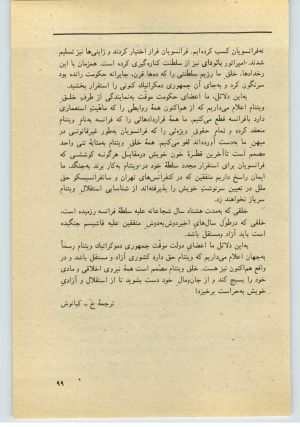 نه‌فرانسویان کسب کرده‌ایم. فرانسویان فرار اختیار کردند و ژاپنی‌ها نیز تسلیم
شدند. امپراتور بائودای نیز از سلطنت کناره‌گیری کرده است. همزمان با این
رخدادها، خلق ما رژیم سلطنتی را که ده‌ها قرن، جابرانه حکومت رانده بود
سرنگون کرد و به‌جای آن جمهوری دمکراتیک کنونی را استقرار بخشید.
به‌این دلائل، ما اعضای حکومت موقت به‌نمایندگی از طرف خلق
ویتنام اعلام می‌داریم که از هم‌اکنون همهٔ روابطی را که ماهیت استعماری
دارد بافرانسه قطع می‌کنیم. ما همهٔ قراردادهائی را که فرانسه به‌نام ویتنام
منعقد کرده و تمام حقوق ویژه‌ئی را که فرانسویان به‌طور غیرقانونی در
میهن ما به‌دست آورده‌اند لغو می‌کنیم. همهٔ خلق ویتنام به‌مثابهٔ تنی واحد
مصمم است تاآخرین قطرهٔ خون خویش در‌مقابل هرگونه کوششی که
فرانسویان برای استقرار مجدد سلطهٔ خود در‌ویتنام به‌کار برند به‌جنگد. ما
ایمان راسخ داریم متفقین که در کنفرانس‌های تهران و سانفرانسیسکو حق
ملل در تعیین سرنوشت خویش را پذیرفته‌اند از شناسایی استقلال ویتنام
سرباز نخواهند زد.
خلقی که به‌مدت هشتاد سال شجاعانه علیه سلطهٔ فرانسه رزمیده است،
خلقی که در‌طول سال‌های اخیر‌دوش‌به‌دوش متفقین علیه فاشیسم جنگیده
است باید آزاد و‌مستقل باشد.
به‌این دلائل ما اعضای دولت موقت جمهوری دموکراتیک ویتنام رسماً
به‌جهان اعلام می‌داریم که ویتنام حق دارد کشوری آزاد و مستقل باشد و در
واقع هم‌اکنون نیز هست. خلق ویتنام مصمم است همه نیروی اخلاقی و مادی
خود را بسیج کند و از جان‌و‌مال خود دست بشوید تا از استقلال و آزادی
خویش به‌حراست برخیزد!
ترجمهٔ خ ـ کیانوش
۹۹